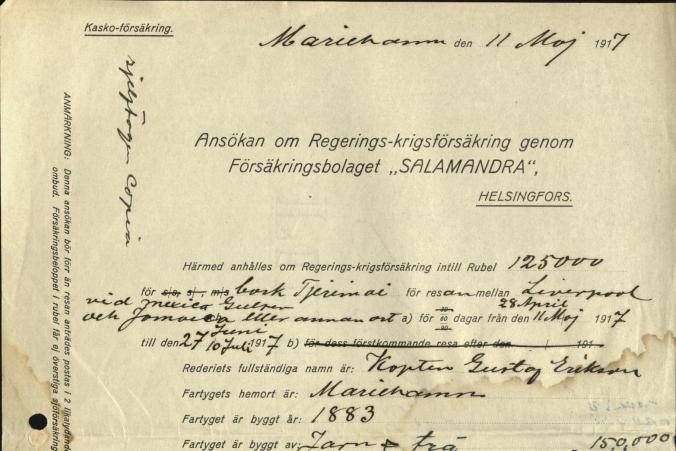 Kasko-försäkring.
Mariehamn den 11 Maj 1917
Ansökan om Regerings-krigsförsäkring genom
Försäkringsbolaget „SALAMANDRA“,
HELSINGFORS.
Härmed anhålles om Regerings-krigsförsäkring intill Rubel 125000
för s/s, s/, m/s bark Tjerimai för resan mellan Liverpool
vid Mexico Gulfen
28 April
och Jamaica eller annan ort a) för 60 dagar från den 11 Maj 1917
Juni
till den 27 10 Juli 1917 b) för dess förstkommande resa efter den 191
Rederiets fullständiga namn är: Kapten Gustaf Erikson
Fartygets hemort är: Mariehamn
Fartyget är byggt år: 1883
Fartyget är byggt av: Järn & trä 150,000
ANMÄRKNING: Denna ansökan bör förr än resan anträdes postas i 2 likalydande
ombud. Försäkringsbeloppet i rubel får ej överstiga sjöförsäkring
copia